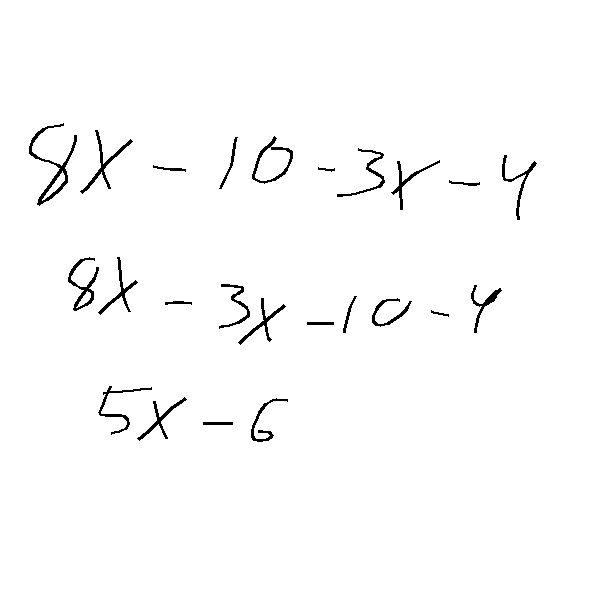 8x - 10 - 3x - 4
8x - 3x - 10 - 4
5x - 6